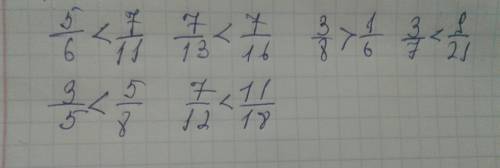 5/6 < 7/11 7/13 < 7/16 3/8 > 1/6 3/7 < 8/21
3/5 < 5/8 7/12 < 11/18